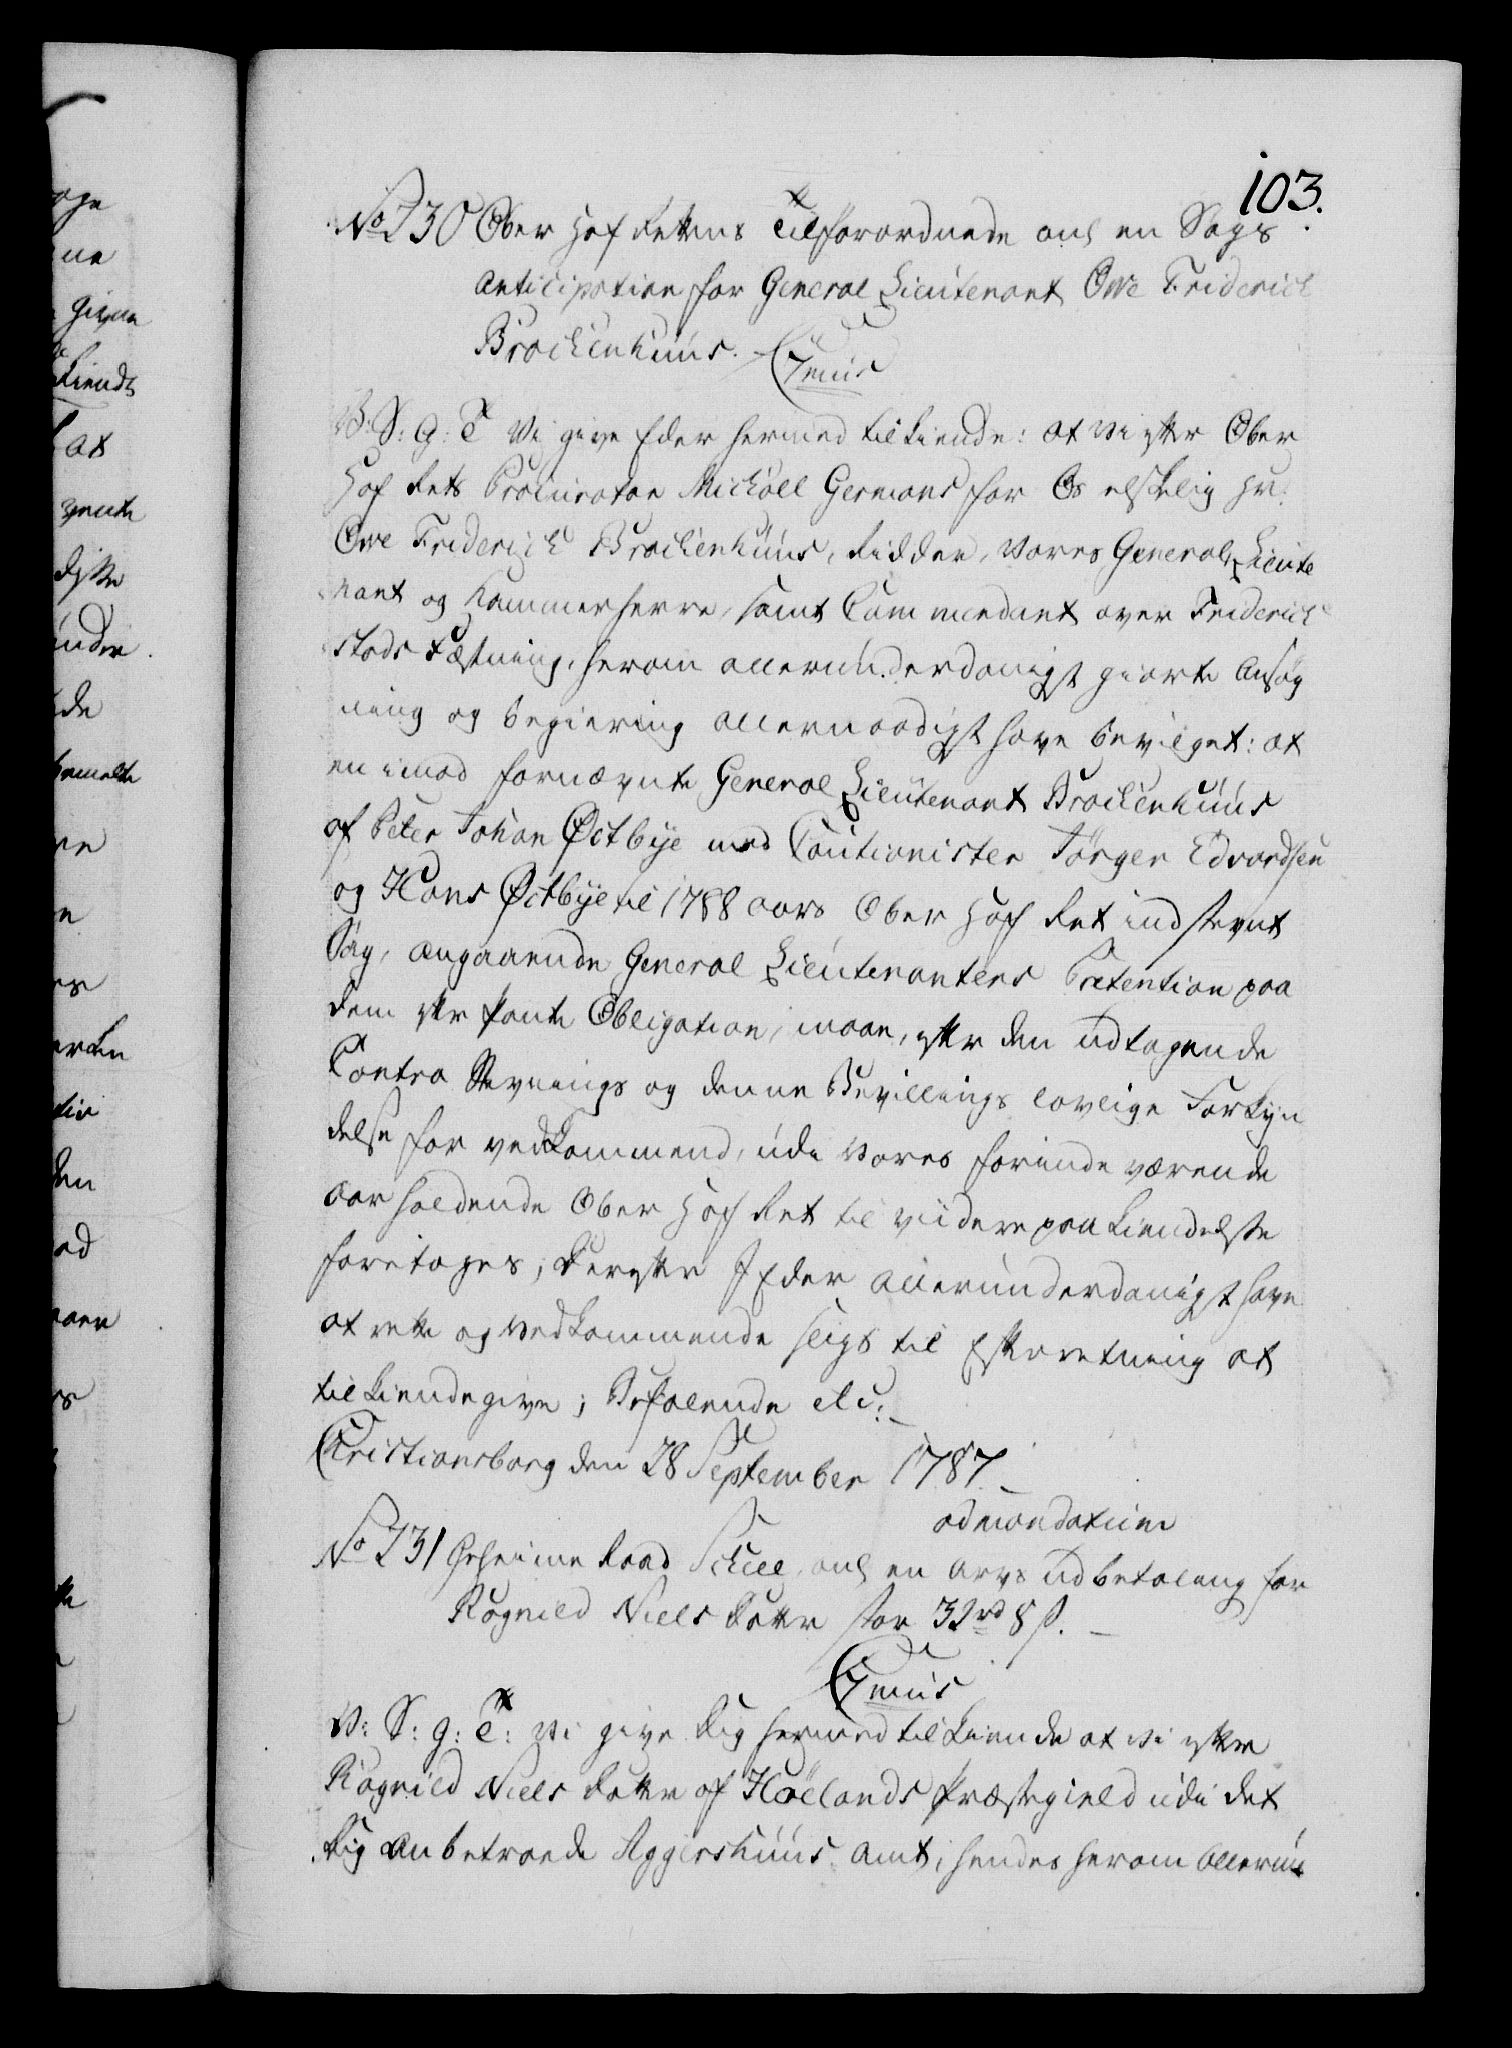 103.
No 230 Ober Hof Rettens Tilforordnede anl en Sags
Anticipation for General Lieutenant Owe Friderich
Brockenhuus.
C7mus
V: S: G: T Vi give Eder hermed tilkiende: at vi efter Ober
Hof Rets Procurator Michael Germans for Os elskelig Hr:
Owe Friderich Brockenhuus, Ridder, Vores General Lieute
nant og Kammerherre, samt Commendant over Friderich
stads Fæstning, herom allerunderdanigst giorte Ansøg
ning og begiering allernaadigst have bevilget: at
en imod fornævnte General Lieutenant Brockenhuus
af Peter Johan Østbye med Cautionister Jørgen Edvardsen
og Hans Østbye til 1788 aars Ober Hof Ret indstevnt
Sag, angaaende General Lieutenantens Prætention paa
dem efter Pante Obligation, maae, efter den udtagende
Contra Stevnings og denne Bevillings lovlige Forkyn
delse for vedkommend, udi vores forinde værende
Aar holdende Ober Hof Ret til viidere paakiendelse
foretages; Derefter I Eder allerunderdanigst have
at rette og Vedkommende sligt til Efterretning at
tilkiendegive; Befalende etc:
Christiansborg den 28 September 1787
ad mandatum
No 231 Geheime Raad Schell, anl en Arvs udbetaling for
Rognild Niels Datter stor 32 rd 8 s.
C7mus
V: S: G: T: Vi give Dig hermed tilkiende at vi efter
Rognild Niels Datter af Høelands Præstegield udi det
Dig anbetroede Aggershuus Amt, hendes herom allerun